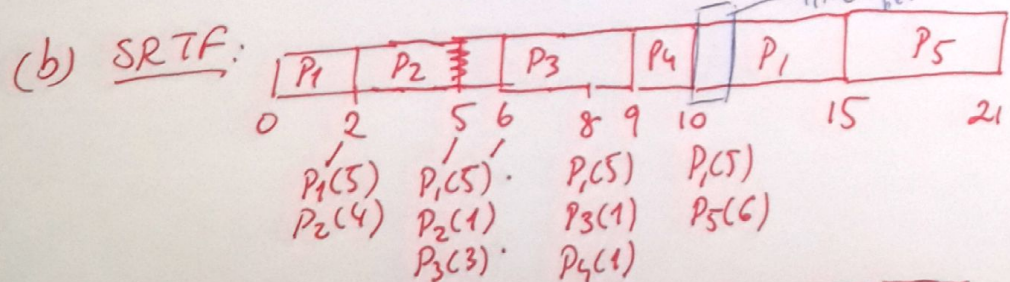 (b) SRTF:
P1 P2 P3 P4 P1 P5
0 2 5 6 8 9 10 15 21
P1(5) P1(5) P1(5) P1(5)
P2(4) P2(1) P3(1) P5(6)
P3(3) P4(1)